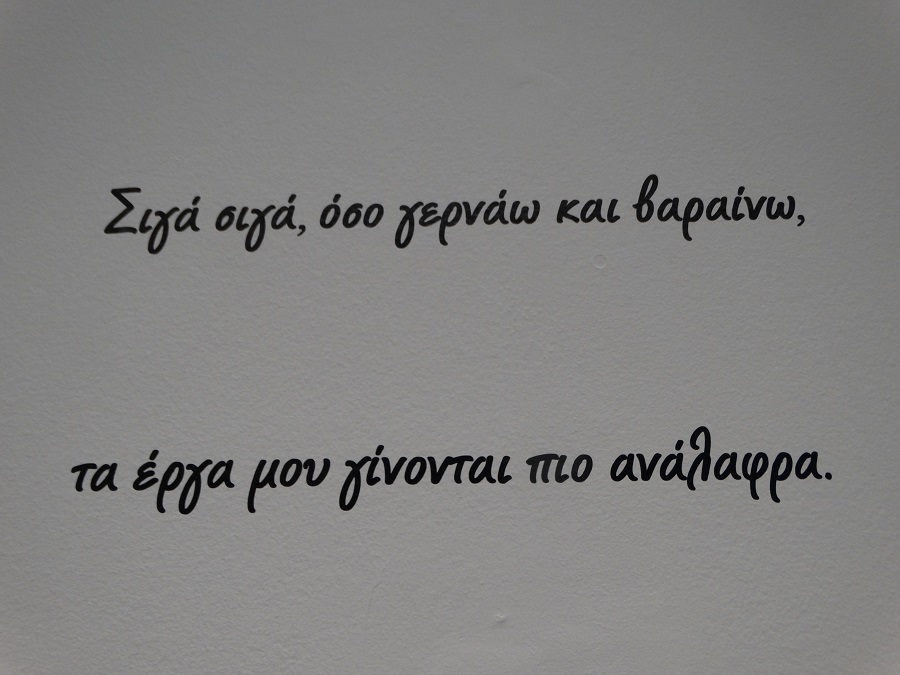 Σιγά σιγά, όσο γερνάω και βαραίνω,
τα έργα μου γίνονται πιο ανάλαφρα.